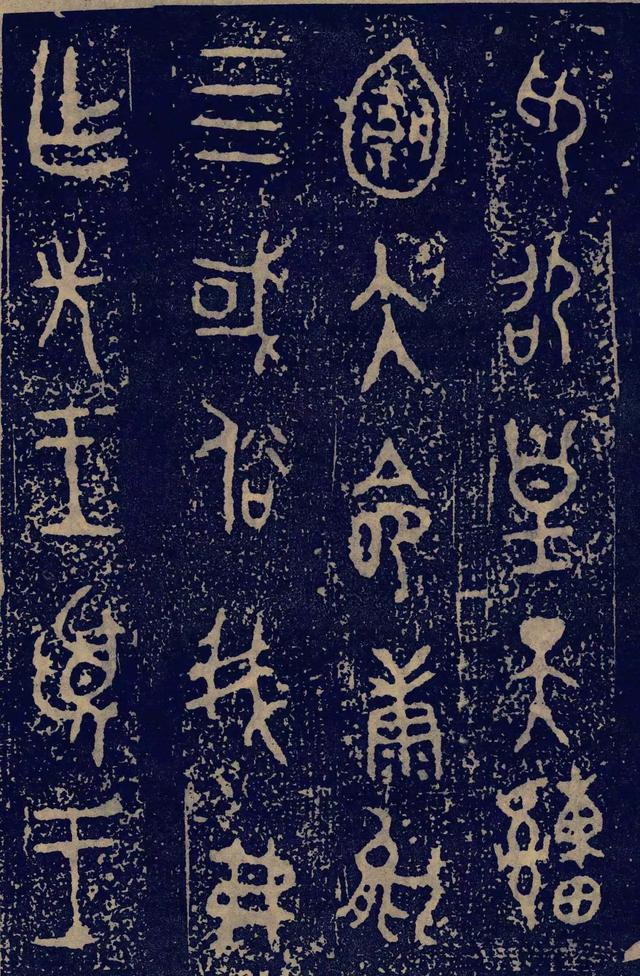 卬卲皇天緟
固大命康能
四或俗我弗
乍先王憂王